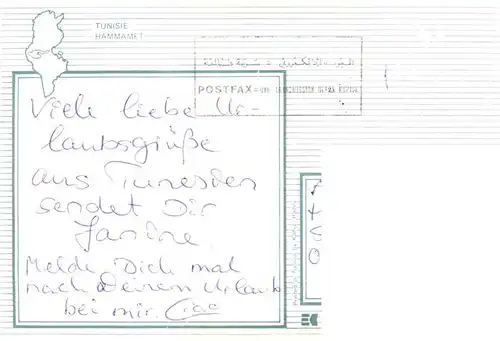 TUNISIE
HAMMAMET
البريد الالكتروني = سرعة فائقة
POSTFAX=
Viele liebe Ur-
laubsgrüße
aus Tunesien
sendet Dir
Janine.
Melde Dich mal
nach Deinem Urlaub
bei mir. Ciao